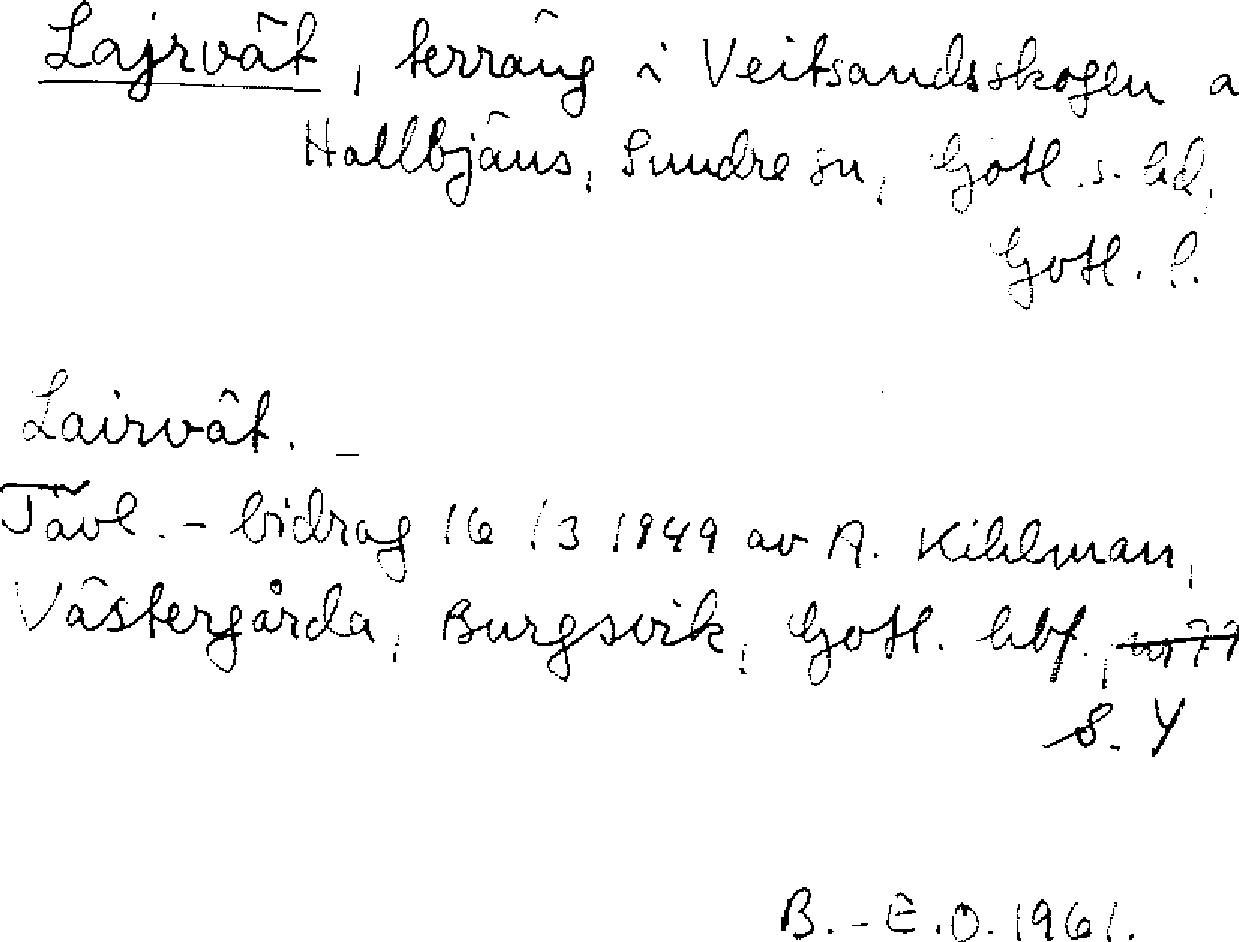 Lajrvät, terräng i Veitsandsskogen a
Hallbjäns, Sundre sn, Gotl. s. hd,
Gotl. l.
Lairvät. –
Tävl. – bidrag 16/3 1949 av A. Kihlman,
Västergårda, Burgsvik, Gotl. hbf.,
s. 4
B.-E.O. 1961.